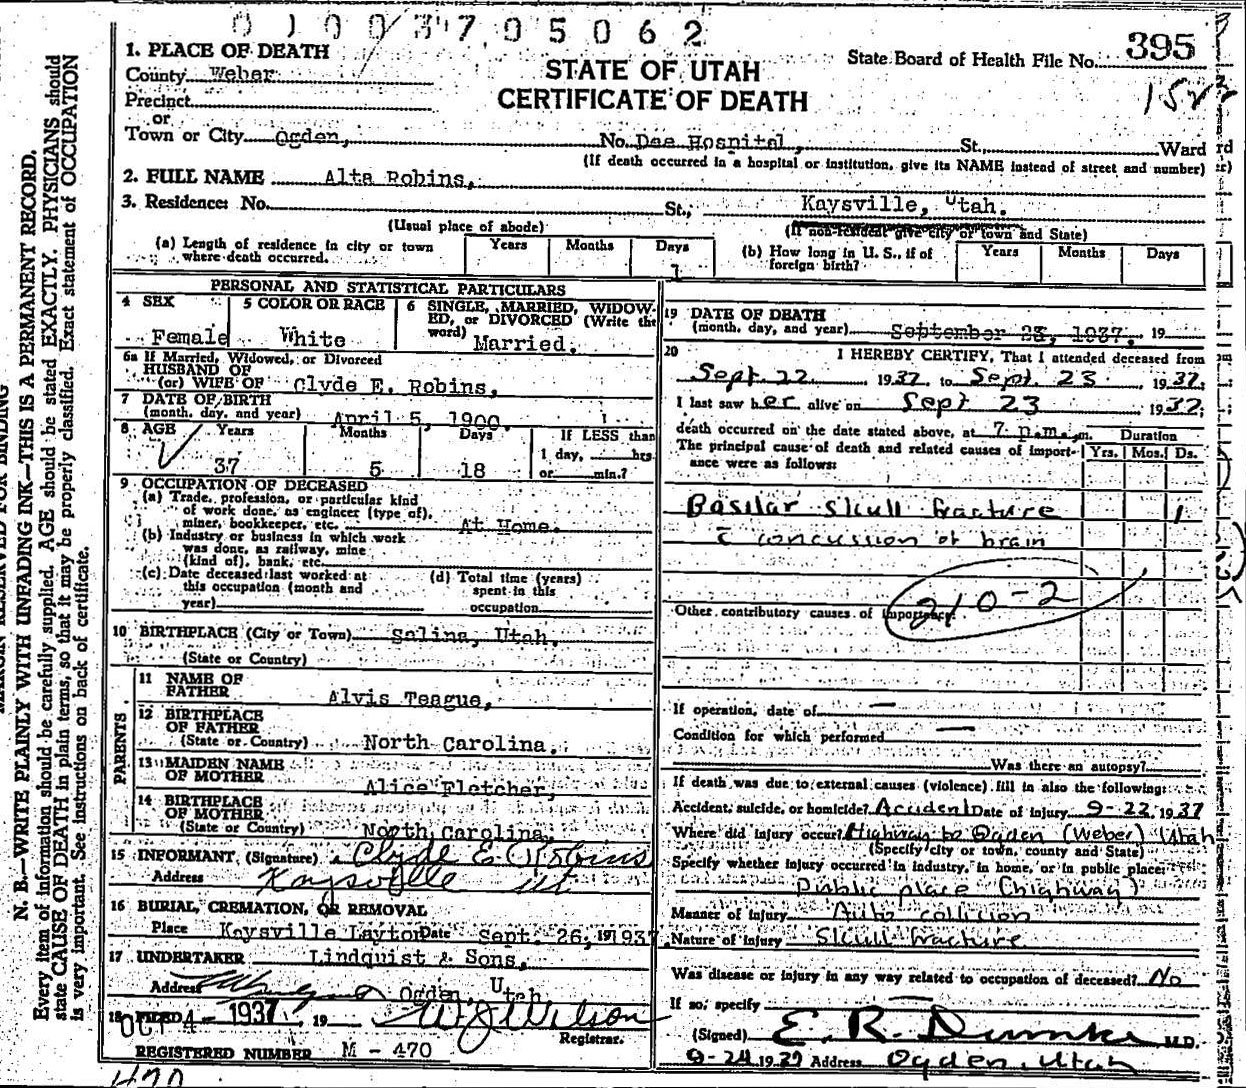 0 1 0 0 3 7 0 5 0 6 2
1. PLACE OF DEATH
County Weber
Precinct
or
Town or City Ogden,
STATE OF UTAH
CERTIFICATE OF DEATH
State Board of Health File No. 395
No. Dee Hospital, St., Ward
(If death occurred in a hospital or institution, give its NAME instead of street and number)
2. FULL NAME Alta Robins,
3. Residence: No. St., Kaysville, Utah.
(Usual place of abode) (If non-resident give city or town and State)
(a) Length of residence in city or town where death occurred. Years Months Days 1
(b) How long in U. S., if of foreign birth? Years Months Days
PERSONAL AND STATISTICAL PARTICULARS
4 SEX Female
5 COLOR OR RACE White
6 SINGLE, MARRIED, WIDOWED, or DIVORCED (Write the word) Married.
6a If Married, Widowed, or Divorced
HUSBAND OF
(or) WIFE OF Clyde E. Robins,
7 DATE OF BIRTH
(month, day, and year) April 5, 1900.
8 AGE Years Months Days If LESS than
1 day, hrs.
37 5 18 or min.?
9 OCCUPATION OF DECEASED
(a) Trade, profession, or particular kind
of work done, as engineer (type of),
miner, bookkeeper, etc. At Home.
(b) Industry or business in which work
was done, as railway, mine
(kind of), bank, etc.
(c) Date deceased last worked at
this occupation (month and
year)
(d) Total time (years)
spent in this
occupation
10 BIRTHPLACE (City or Town) Salina, Utah.
(State or Country)
PARENTS
11 NAME OF
FATHER Alvis Teague,
12 BIRTHPLACE
OF FATHER
(State or Country) North Carolina.
13 MAIDEN NAME
OF MOTHER Alice Fletcher,
14 BIRTHPLACE
OF MOTHER
(State or Country) North Carolina.
15 INFORMANT, (Signature) Clyde E Robins
Address Kaysville Ut
16 BURIAL, CREMATION, OR REMOVAL
Place Kaysville Layton Date Sept. 26, 1937
17 UNDERTAKER Lindquist & Sons,
Address Ogden, Utah
18 FILED OCT 4 - 1937 19 W J Wilson
Registrar.
REGISTERED NUMBER M - 470
470
19 DATE OF DEATH
(month, day, and year) September 23, 1937. 19
20 I HEREBY CERTIFY, That I attended deceased from
Sept. 22 1937 to Sept. 23, 1937;
I last saw her alive on Sept 23 1937;
death occurred on the date stated above, at 7 p.m. m.
Duration
The principal cause of death and related causes of importance were as follows: Yrs. Mos. Ds.
Basilar skull fracture 1
c̄ concussion of brain
210-2
Other contributory causes of importance:
If operation, date of —
Condition for which performed —
Was there an autopsy?
If death was due to external causes (violence) fill in also the following:
Accident, suicide, or homicide? Accident Date of injury 9-22 1937
Where did injury occur? Highway to Ogden (Weber) Utah
(Specify city or town, county and State)
Specify whether injury occurred in industry, in home, or in public place:
Public place (highway)
Manner of injury Auto collision
Nature of injury Skull fracture
Was disease or injury in any way related to occupation of deceased? No
If so, specify —
(Signed) E. R. Dumke M.D.
9-24 1937 Address Ogden, Utah
N. B.—WRITE PLAINLY WITH UNFADING INK—THIS IS A PERMANENT RECORD.
Every item of information should be carefully supplied. AGE should be stated EXACTLY. PHYSICIANS should
state CAUSE OF DEATH in plain terms, so that it may be properly classified. Exact statement of OCCUPATION
is very important. See instructions on back of certificate.